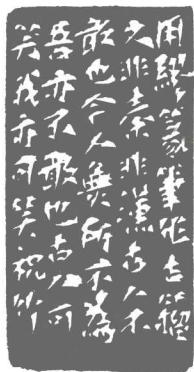 用繆篆筆作古籀
文非秦非漢古人不
敢也今人無所不為
吾亦不敢也古人可
笑我亦可笑祝竹